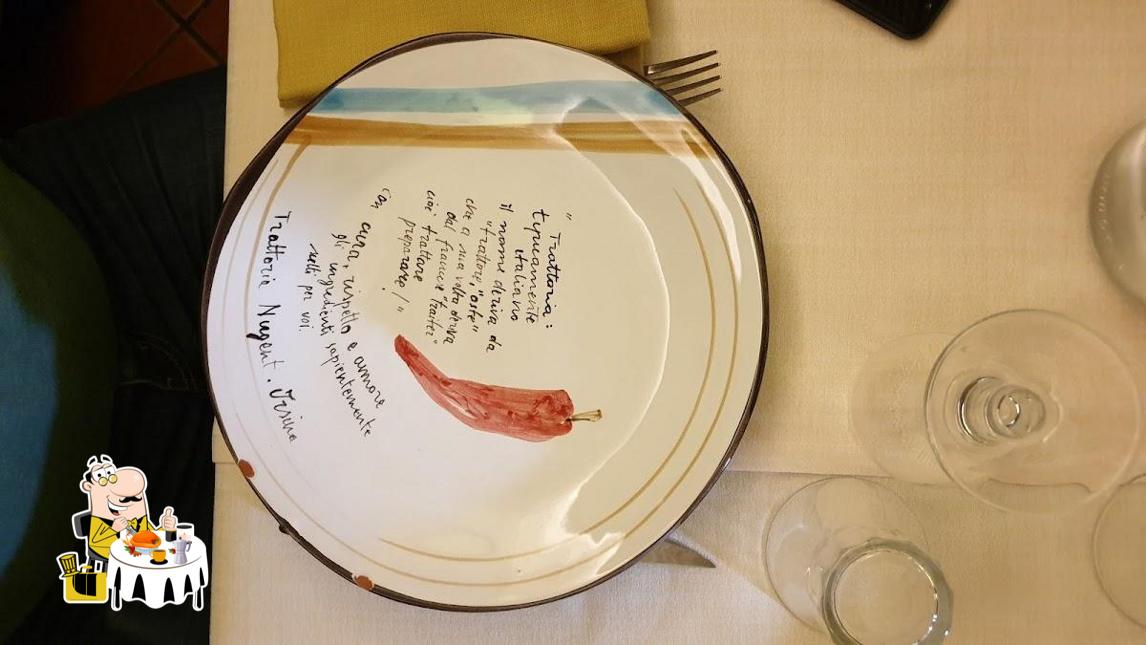 "Trattoria:
tipicamente
italiano
il nome deriva da
"trattore", "oste"
che a sua volta deriva
dal francese "traiter"
cioè trattare
preparare!"
Con cura, rispetto e amore
gli ingredienti sapientemente
scelti per voi.
Trattoria Nugent. Irsina